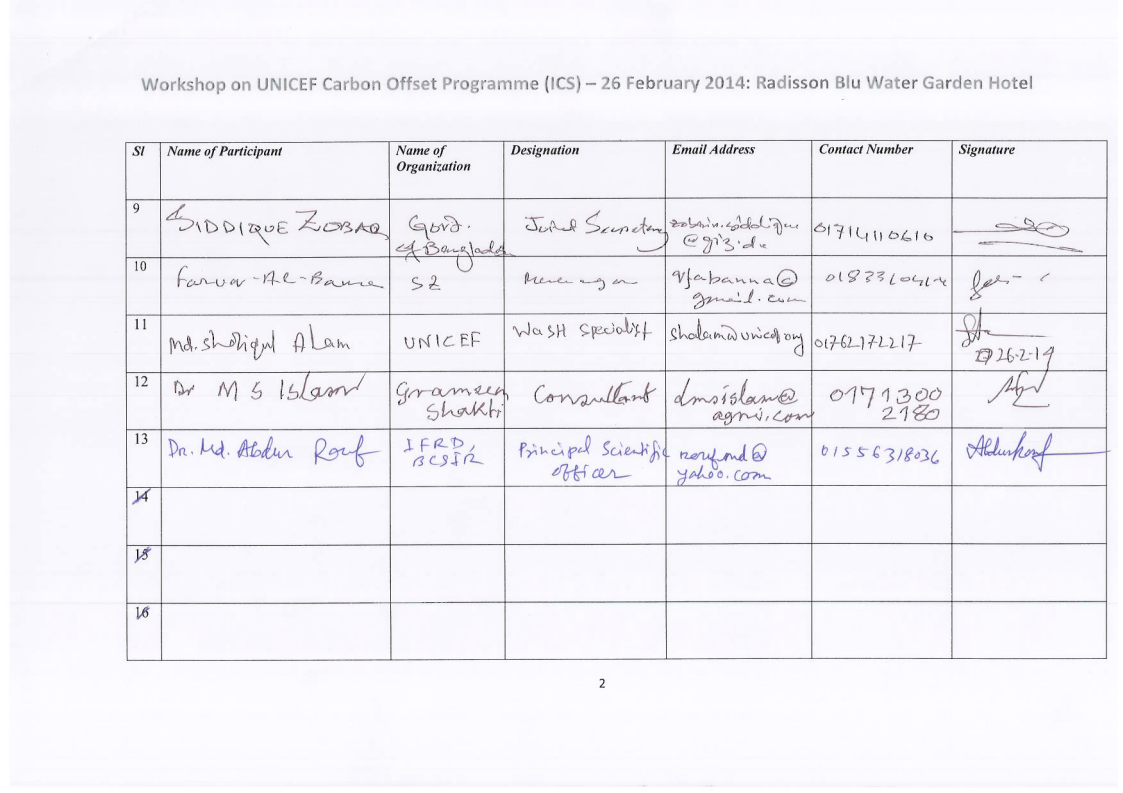 Workshop on UNICEF Carbon Offset Programme (ICS) – 26 February 2014: Radisson Blu Water Garden Hotel
Sl Name of Participant Name of Organization Designation Email Address Contact Number Signature
9 SIDDIQUE ZOBAR Govt. of Bangladesh Joint Secretary @giz.de 01714110610
10 SZ Manager @gmail.com
11 Md. Shofiqul Alam UNICEF WaSH Specialist shalam@unicef.org 01762172217 26-2-14
12 Dr M S Islam Grameen Shakti Consultant dmsislam@agni.com 01713002180
13 Dr. Md. Abdur Rouf IFRD, BCSIR Principal Scientific officer roufmd@yahoo.com 01556318036
14
15
16
2